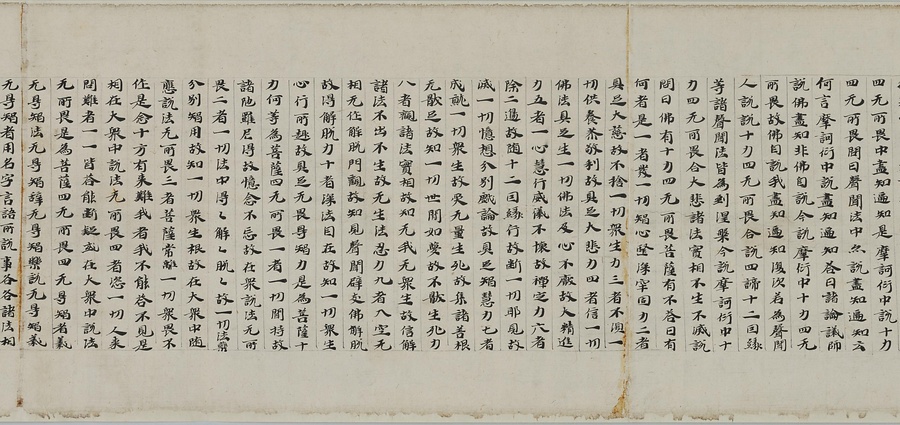 四无所畏中盡知遍知是摩訶衍中說十力
四无所畏問曰聲聞法中亦說盡知遍知云
何言摩訶衍中說盡知遍知答曰諸論議師
說佛盡知非佛自說今說摩訶衍中十力四无
所畏故佛自說我盡知遍知復次為聲聞
人說十力四无所畏合說四諦十二因緣
等諸聲聞法皆為到涅槃今說摩訶衍中十
力四无所畏合大悲諸法實相不生不滅說
問曰佛有十力四无所畏菩薩有不答曰有
何者是一者發一切智心堅深牢固力二者
具足大慈故不捨一切眾生力三者不須一
切供養恭敬利故具足大悲力四者信一切
佛法具足生一切佛法及心不厭故大精進
力五者一心慧行威儀不壞故禪定力六者
除二邊故隨十二因緣行故斷一切耶見故
滅一切憶想分別戲論故具足智慧力七者
成就一切眾生故受无量生死故集諸善根
无厭足故知一切世間如夢故不厭生死力
八者觀諸法實相故知无我无眾生故信解
諸法不出不生故无生法忍力九者入空无
相无作解脫門觀故知見聲聞辟支佛解脫
故得解脫力十者深法自在故知一切眾生
心行所趣故具足无畏无㝵智力是為菩薩十
力何等為菩薩四无所畏一者一切聞持故
諸陀羅尼得故憶念不忘故在眾說法无所
畏二者一切法中得々解々脫々故一切法藥
分別知用故知一切眾生根故在大眾中隨
應說法无所畏三者菩薩常離一切眾畏不
作是念十方有來難我者我不能答不見是
相在大眾中說法无所畏四者恣一切人來
問難者一一皆答能斷疑惑在大眾中說法
无所畏是為菩薩四无所畏四无㝵智者義
无㝵智法无㝵智辭无㝵智樂說无㝵智義
无㝵智者用名字言語所說事各各諸法相